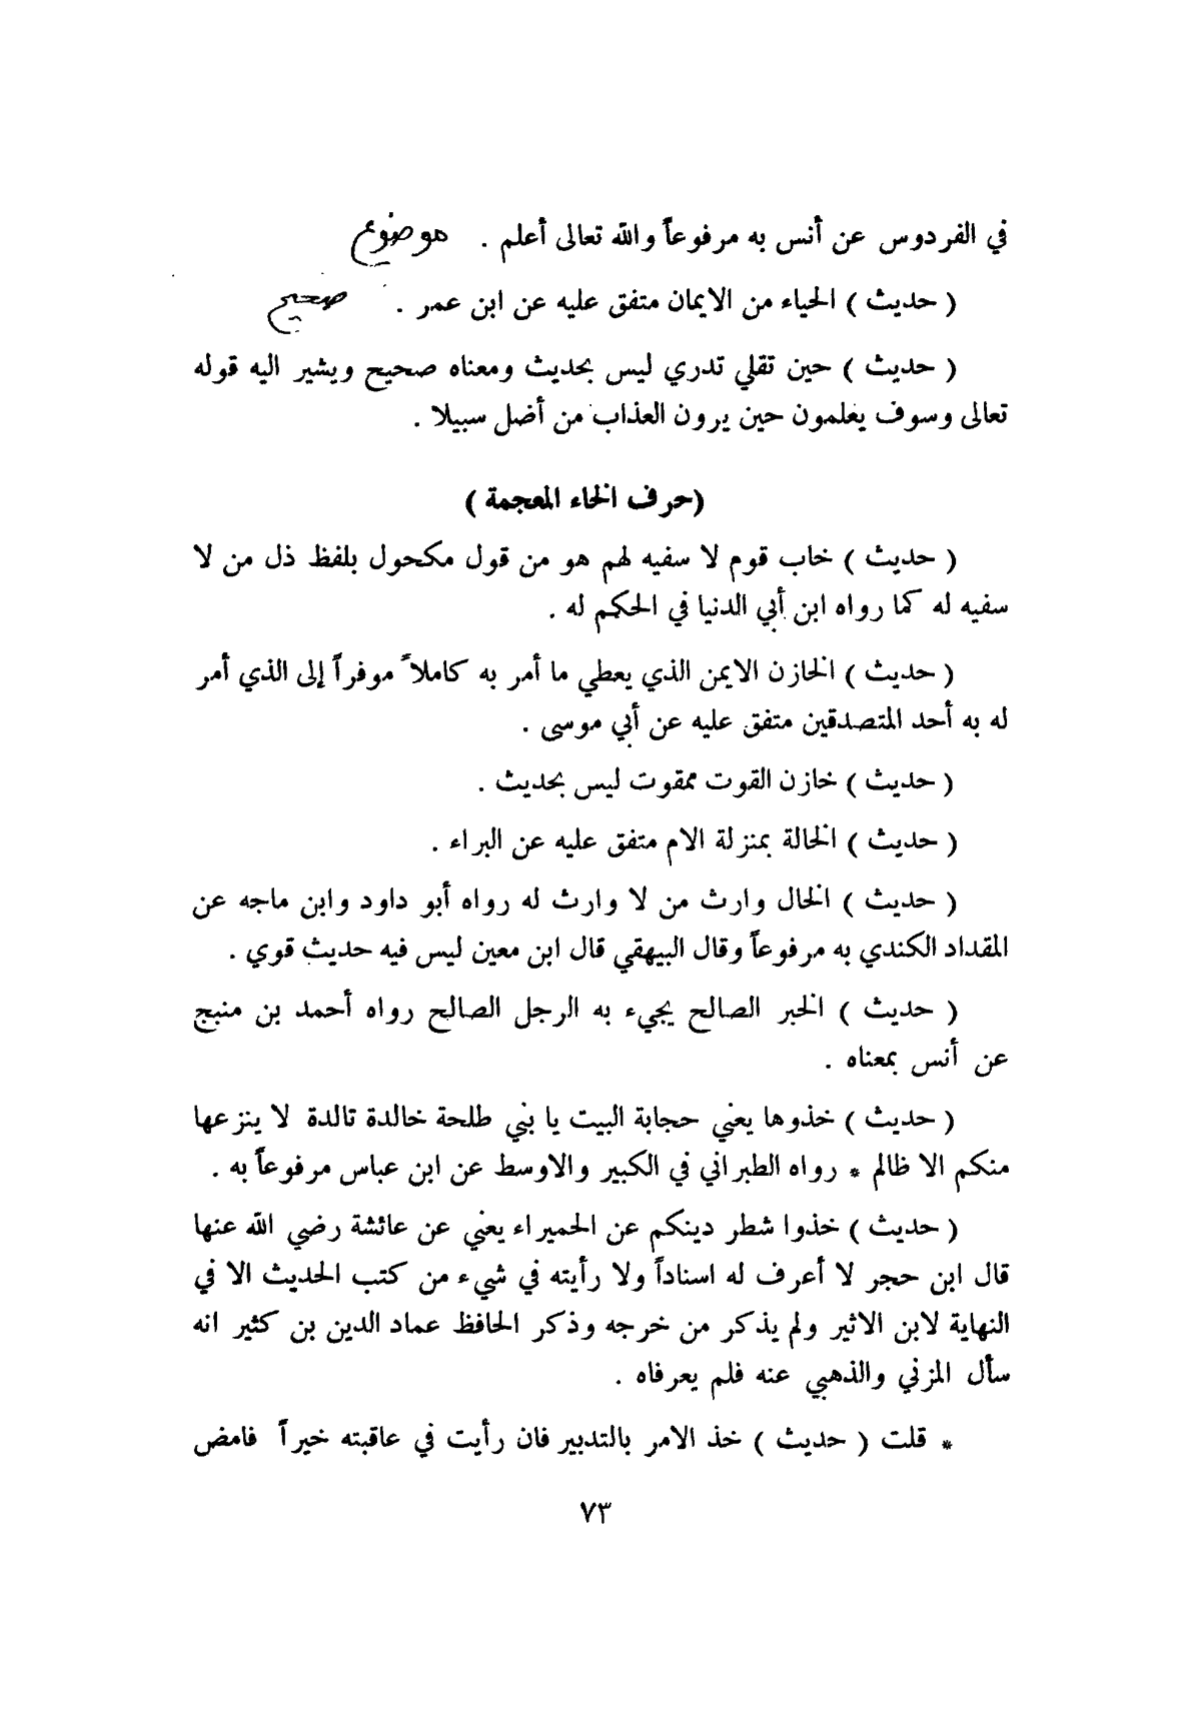 في الفردوس عن أنس به مرفوعاً والله تعالى أعلم . موضوع
( حديث ) الحياء من الايمان متفق عليه عن ابن عمر . صحيح
( حديث ) حين تقلي تدري ليس بحديث ومعناه صحيح ويشير اليه قوله
تعالى وسوف يعلمون حين يرون العذاب من أضل سبيلا .
(حرف الخاء المعجمة )
( حديث ) خاب قوم لا سفيه لهم هو من قول مكحول بلفظ ذل من لا
سفيه له كما رواه ابن أبي الدنيا في الحكم له .
( حديث ) الخازن الايمن الذي يعطي ما أمر به كاملاً موفراً إلى الذي أمر
له به أحد المتصدقين متفق عليه عن أبي موسى .
( حديث ) خازن القوت ممقوت ليس بحديث .
( حديث ) الخالة بمنزلة الام متفق عليه عن البراء .
( حديث ) الخال وارث من لا وارث له رواه أبو داود وابن ماجه عن
المقداد الكندي به مرفوعاً وقال البيهقي قال ابن معين ليس فيه حديث قوي .
( حديث ) الخبر الصالح يجيء به الرجل الصالح رواه أحمد بن منبج
عن أنس بمعناه .
( حديث ) خذوها يعني حجابة البيت يا بني طلحة خالدة تالدة لا ينزعها
منكم الا ظالم * رواه الطبراني في الكبير والاوسط عن ابن عباس مرفوعاً به .
( حديث ) خذوا شطر دينكم عن الحميراء يعني عن عائشة رضي الله عنها
قال ابن حجر لا أعرف له اسناداً ولا رأيته في شيء من كتب الحديث الا في
النهاية لابن الاثير ولم يذكر من خرجه وذكر الحافظ عماد الدين بن كثير انه
سأل المزني والذهبي عنه فلم يعرفاه .
* قلت ( حديث ) خذ الامر بالتدبير فان رأيت في عاقبته خيراً فامض
٧٣